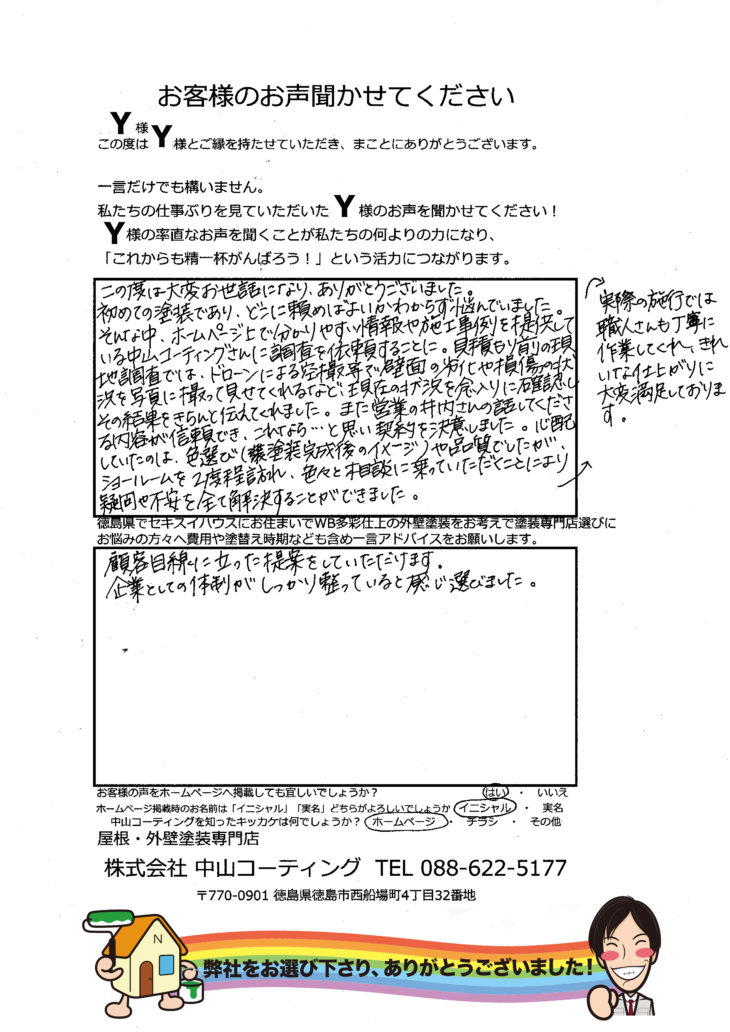 お客様のお声聞かせてください
Y様
この度はY様とご縁を持たせていただき、まことにありがとうございます。
一言だけでも構いません。
私たちの仕事ぶりを見ていただいた Y 様のお声を聞かせてください！
Y様の率直なお声を聞くことが私たちの何よりの力になり、
「これからも精一杯がんばろう！」という活力につながります。
この度は大変お世話になり、ありがとうございました。
初めての塗装であり、どこに頼めばよいかわからず悩んでいました。
そんな中、ホームページ上で分かりやすい情報や施工事例を提供して
いる中山コーティングさんに調査を依頼することに。見積もり前の現
地調査では、ドローンによる空撮等で壁面の劣化や損傷の状
況を写真に撮って見せてくれるなど、現在の状況を念入りに確認し
その結果をきちんと伝えてくれました。また営業の井内さんの話してくださ
る内容が信頼でき、これなら…と思い契約を決意しました。心配
していたのは、色選び(塗装完成後のイメージ)や品質でしたが、
ショールームを2度程訪れ、色々と相談に乗っていただくことにより
疑問や不安を全て解決することができました。
実際の施行では
職人さんも丁寧に
作業してくれ、きれ
いな仕上がりに
大変満足しておりま
す。
徳島県でセキスイハウスにお住まいでWB多彩仕上の外壁塗装をお考えで塗装専門店選びに
お悩みの方々へ費用や塗替え時期なども含め一言アドバイスをお願いします。
顧客目線に立った提案をしていただけます。
企業としての体制がしっかり整っていると感じ選びました。
お客様の声をホームページへ掲載しても宜しいでしょうか？ はい ・ いいえ
ホームページ掲載時のお名前は「イニシャル」「実名」どちらがよろしいでしょうか イニシャル ・ 実名
中山コーティングを知ったキッカケは何でしょうか？ ホームページ ・ チラシ ・ その他
屋根・外壁塗装専門店
株式会社 中山コーティング TEL 088-622-5177
〒770-0901 徳島県徳島市西船場町4丁目32番地
N
弊社をお選び下さり、ありがとうございました！